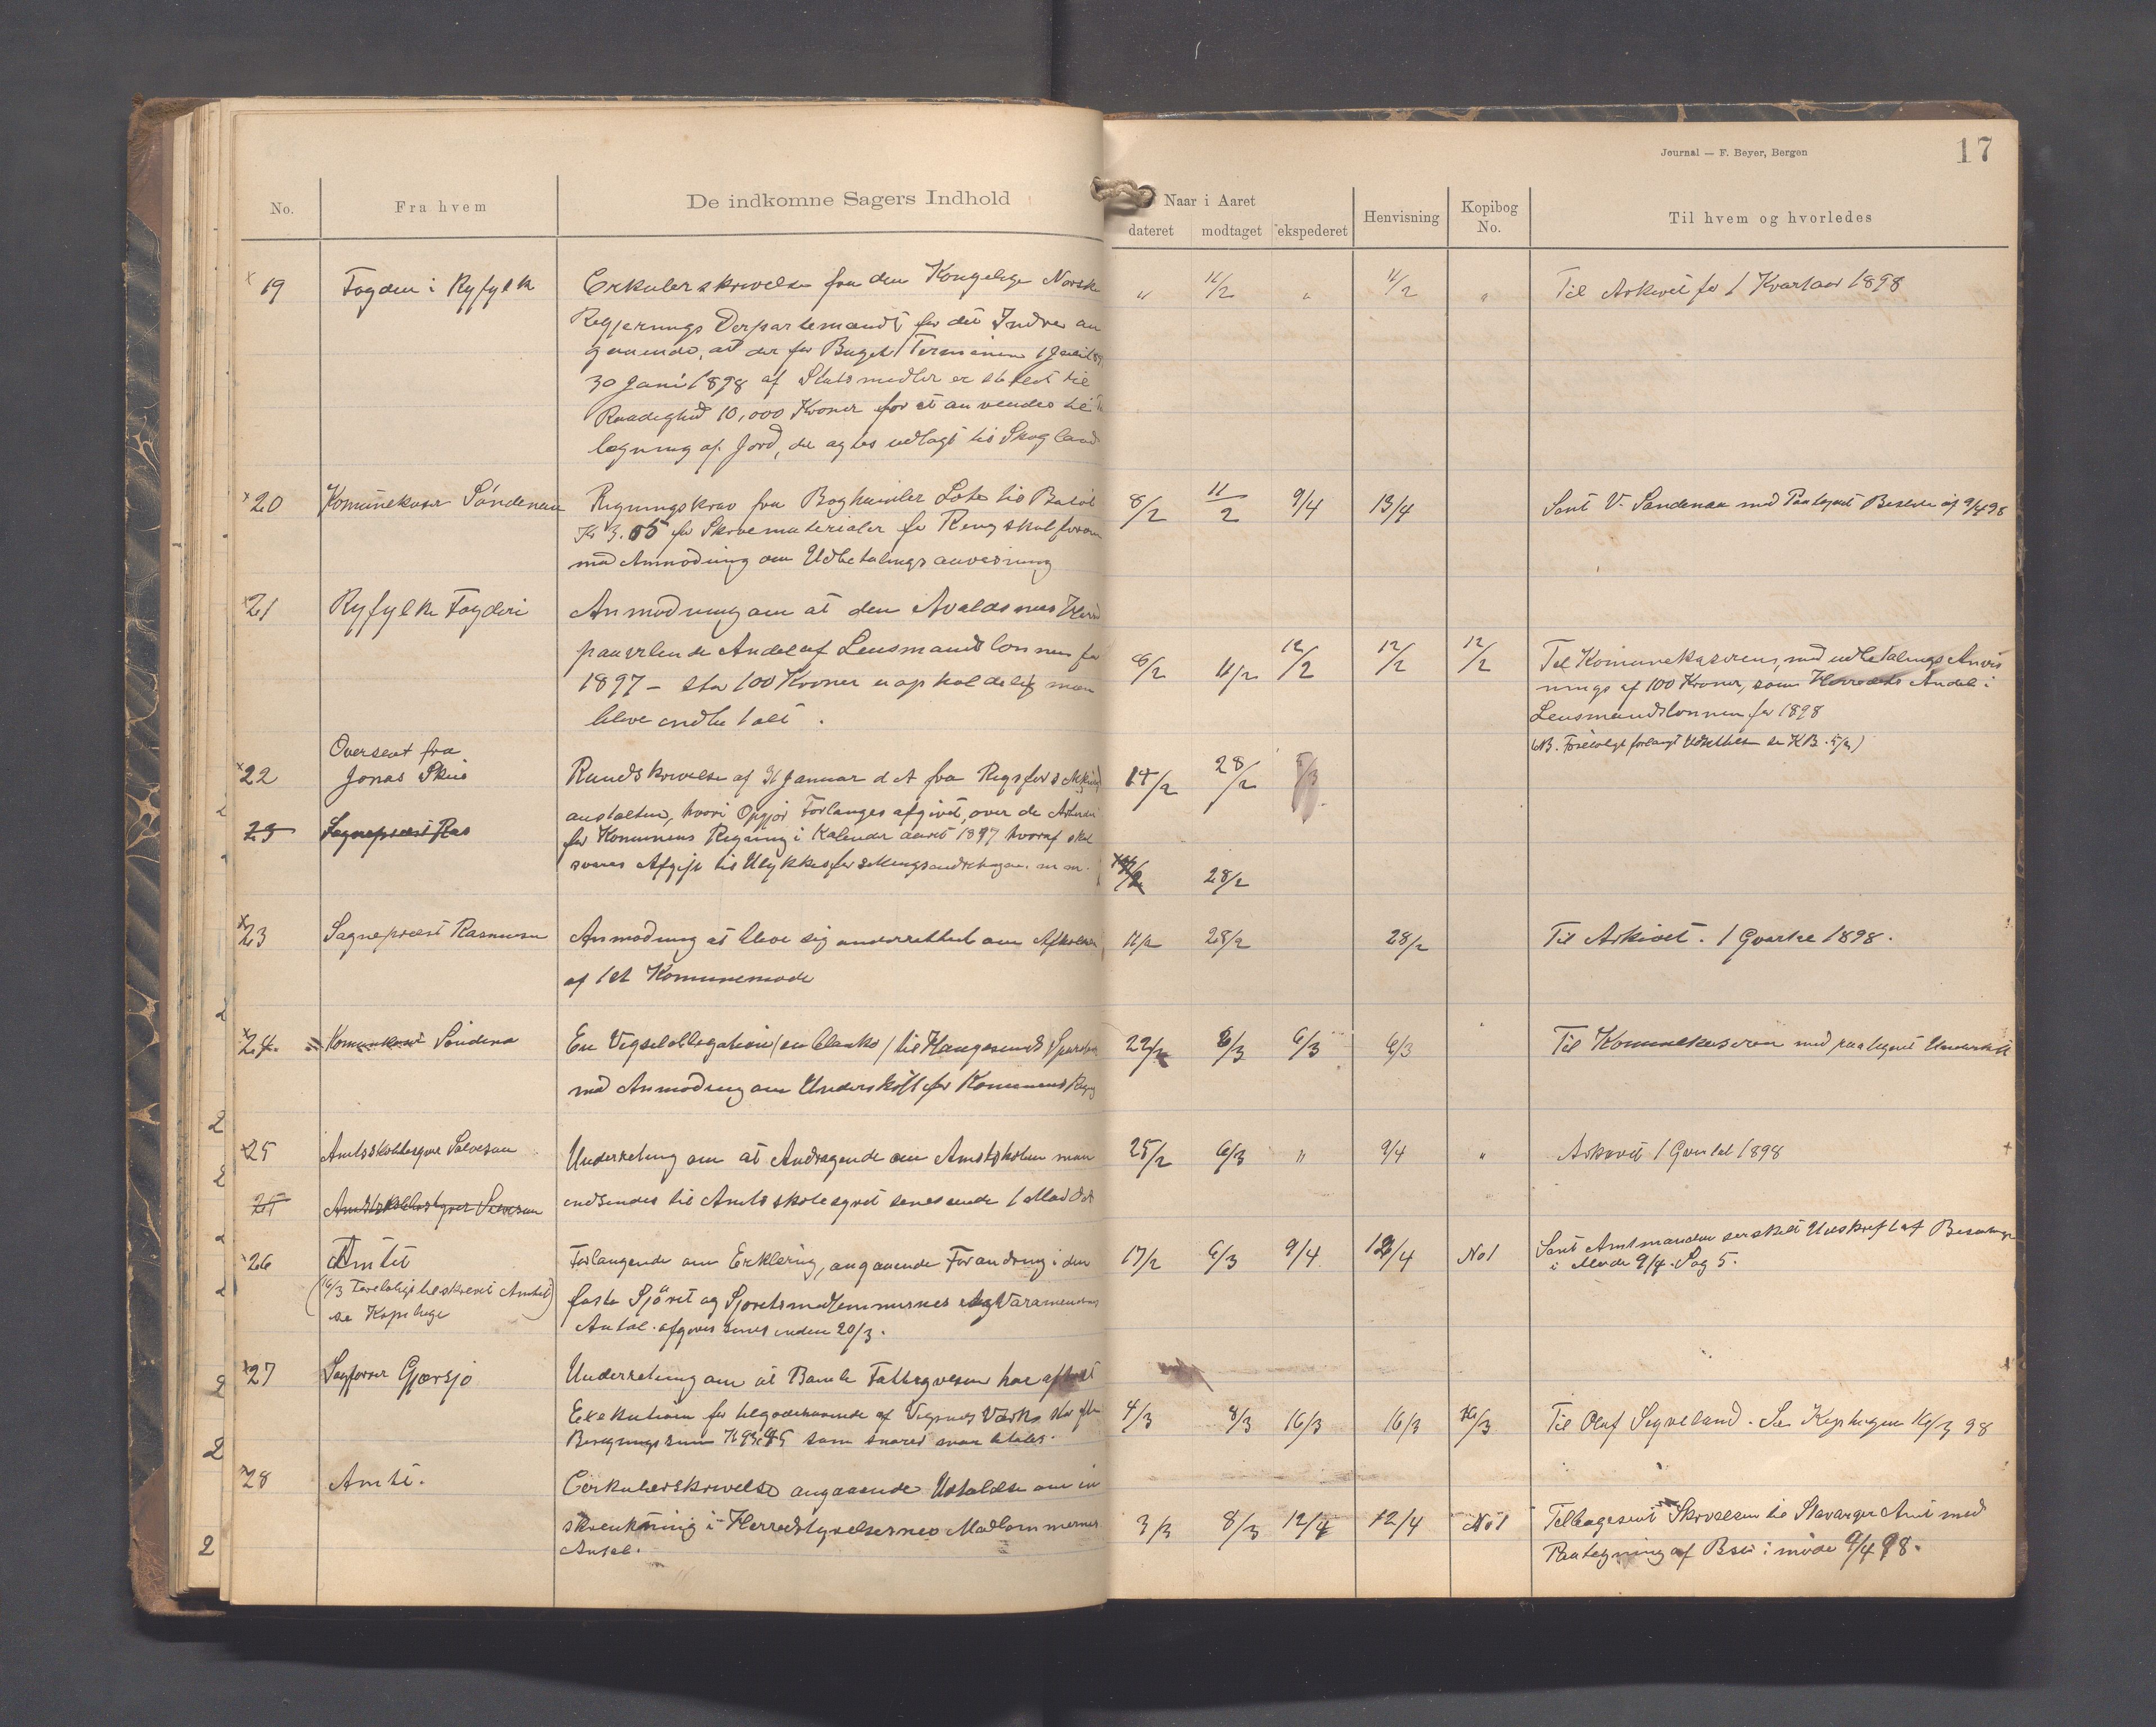 Journal — F. Beyer, Bergen
17
No.
Fra hvem
De indkomne Sagers Indhold
Naar i Aaret
dateret
modtaget
ekspederet
Henvisning
Kopibog
No.
Til hvem og hvorledes
19 Fogden i Ryfylke
Cirkulerskrivelse fra den Kongelige Norske
Regjerings Departemandt for det Indre an
gaaende, at der for Buget Terminen 1 Juli
30 Juni 1898 af Statsmedler er stillet til
Raadighed 10,000 Kroner for at anvendes til
lægning af Jord, der agtes udlagt til Skogland
" 11/2 " 11/2 "
Til Arkivet for 1 Kvartal 1898
20 Komunekaser Söndenaa
Regningskrav fra Boghandler Lote til Beløb
Kr 3.65 for Skrivematerialer for
med Anmodning om Udbetalings anvisning
8/2 11/2 9/4 13/4
Sent V. Søndenaa med Paategnet Beslut af 9/4 98
21 Ryfylke Fogderi
Anmodning om at den Avaldsnes Herred
paavilende Andel af Lensmandslønnen for
1897 — stor 100 Kroner uopholdelig maa
blive indbetalt.
8/2 11/2 12/2 12/2 12/2
Til Komunekasereren med udbetalings Anvis
nings af 100 Kroner, som Herredets Andel i
Lensmandslønnen for 1898
22 Oversent fra
Jonas Skeie
Rundskrivelse af 31 Januar d A fra Rigsforsikrings
anstalten, hvori Opgjør Forlanges afgivet, over de
for Komunens Regning i Kalender aaret 1897 hvoraf skal
svares Afgift til
14/2 28/2
23 Sognepræst
28/2
23 Sognepræst Rasmussen
Anmodning at blive sig underrettet om Afholdelse
af 1et Komunemøde
11/2 28/2 28/2
Til Arkivet. 1 Qvartal 1898.
24 Komunekaser Söndena
En Vexelobligation (in blanko) til Haugesunds Spareb
med Anmodning om Underskrift for Komunens Regn
22/2 6/3 6/3 6/3
Til Komunekaseren med paategnet Underskrift
25 Amtsskolebestyrer Salvesen
Underretning om at Andragende om Amtsskolen maa
indsendes til Amtsskolestyret senest inden 1 Mai
25/2 6/3 " 9/4 "
Arkivet 1 Qvartal 1898
25 Amtsskolebestyrer Salvesen
26 Amtet
(16/3 Foreløbigt tilskrevet Amtet)
se Kopiboge
Forlangende om Erklæring, angaaende Forandring i den
faste Skjönsret og medlemmernes og Varamendenes
Antal. afgives senest inden 20/3.
17/2 6/3 9/4 12/4 No 1
Sent Amtmanden serskilt Udskrift af Beslutning
i Møde 9/4. Sag 5.
27 Sagfører Gjersjø
Underretning om at Bamle Fattigvesen har
Exekution for tilgodehavende af Vigsnes Værk
som snarest maa betales.
4/3 8/3 16/3 16/3 16/3
Til Oluf Sigveland. Se Kopibogen 16/3 98
28 Amtet.
Cirkulerskrivelse angaaende Udtalelse om in
skrenkning i Herredstyrelsernes Medlemmernes
Antal.
3/3 8/3 12/4 12/4 No 1
Tilbagesent Skrivelsen til Stavanger Amt med
Paategning af Besl. i møde 9/4 98.